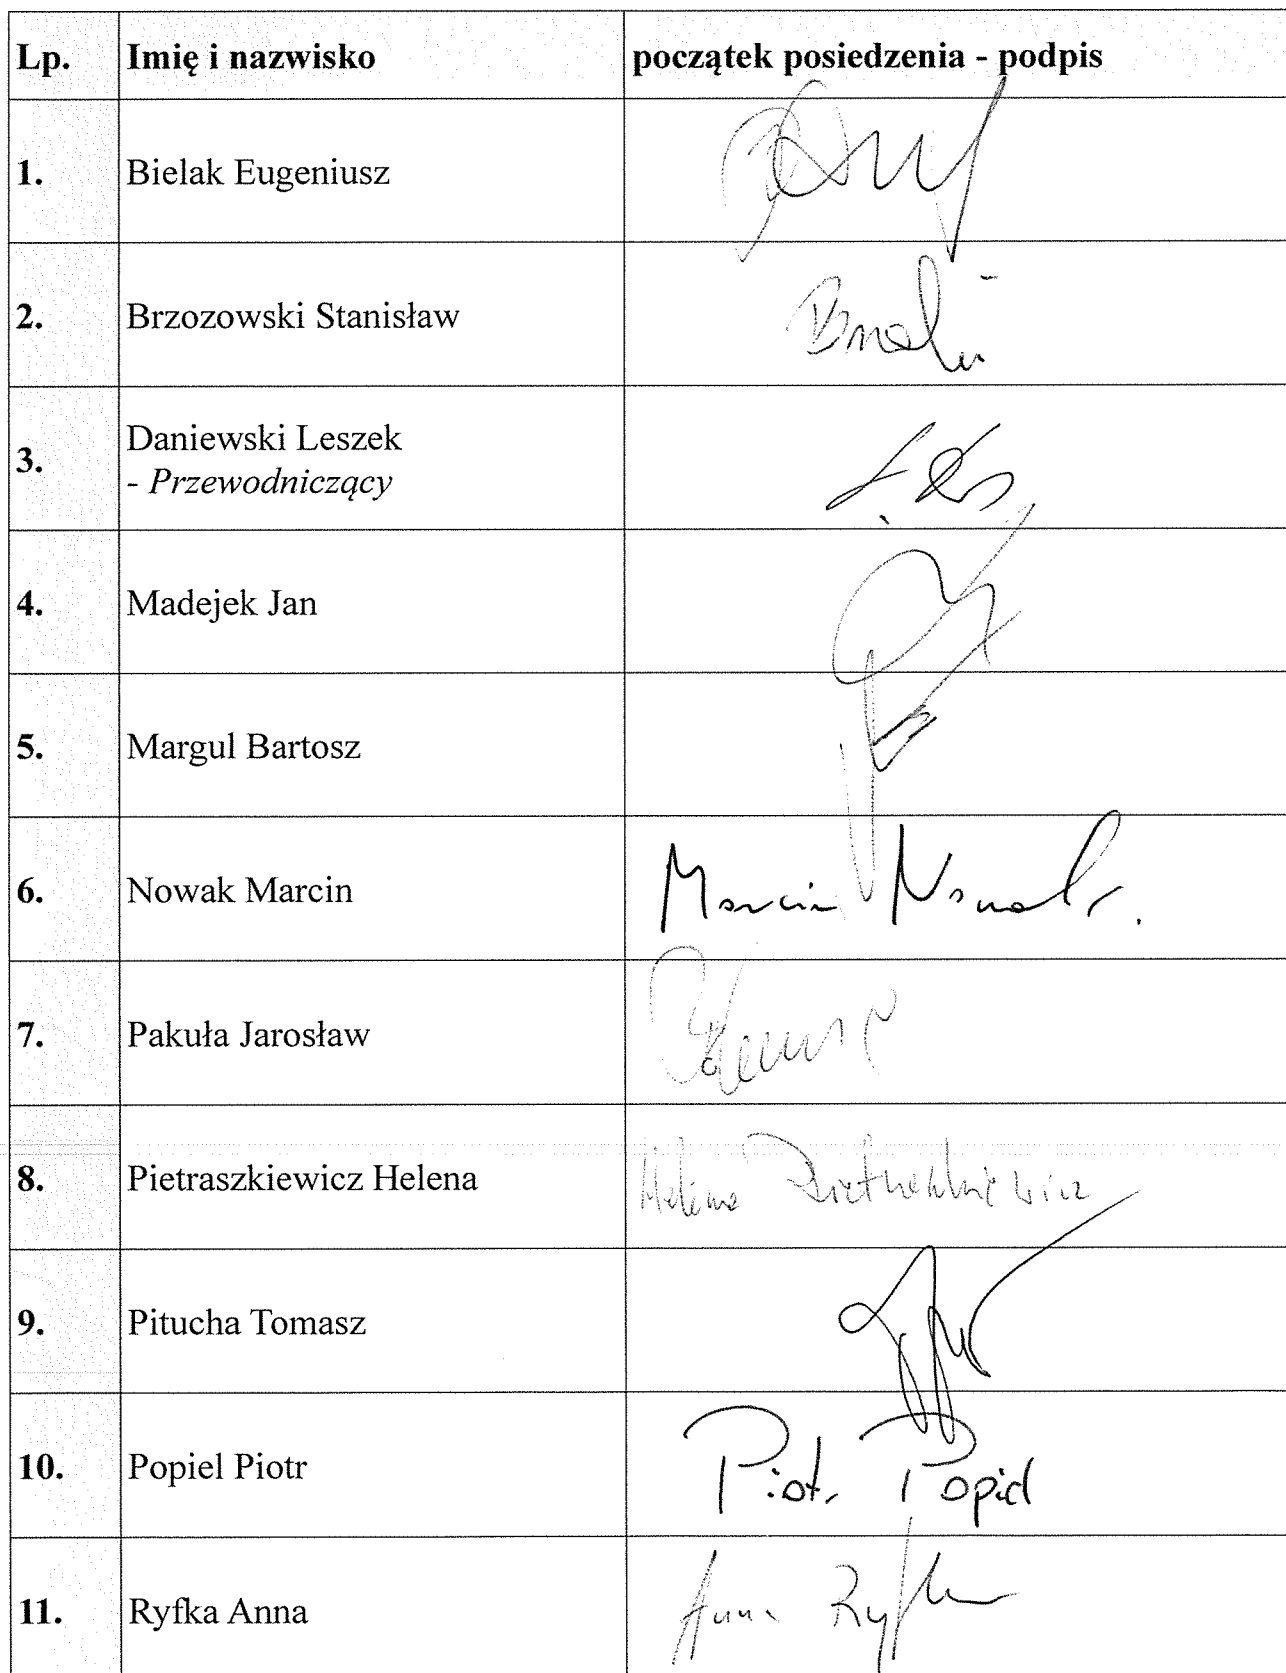 Lp. Imię i nazwisko początek posiedzenia - podpis
1. Bielak Eugeniusz
2. Brzozowski Stanisław
3. Daniewski Leszek
- Przewodniczący
4. Madejek Jan
5. Margul Bartosz
6. Nowak Marcin Marcin Nowak.
7. Pakuła Jarosław
8. Pietraszkiewicz Helena Helena Pietraszkiewicz
9. Pitucha Tomasz
10. Popiel Piotr Piotr Popiel
11. Ryfka Anna Anna Ryfka